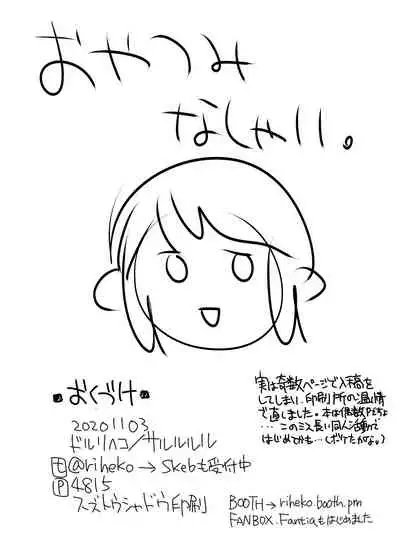 おやつみ
なしゃいい。
おくづけ
20201103
ドルリヘコ/サルルルル
@riheko→Skebも受付中
P 4815
スズトウシャドウ印刷
実は奇数ページで入稿を
してしまい、印刷所の温情
で直しました。本は偶数Pだちょ
...このミス長い同人活動で
はじめてかも…(ボケたかな。)
BOOTH→riheko.booth.pm
FANBOX.Fantiaもはじめました